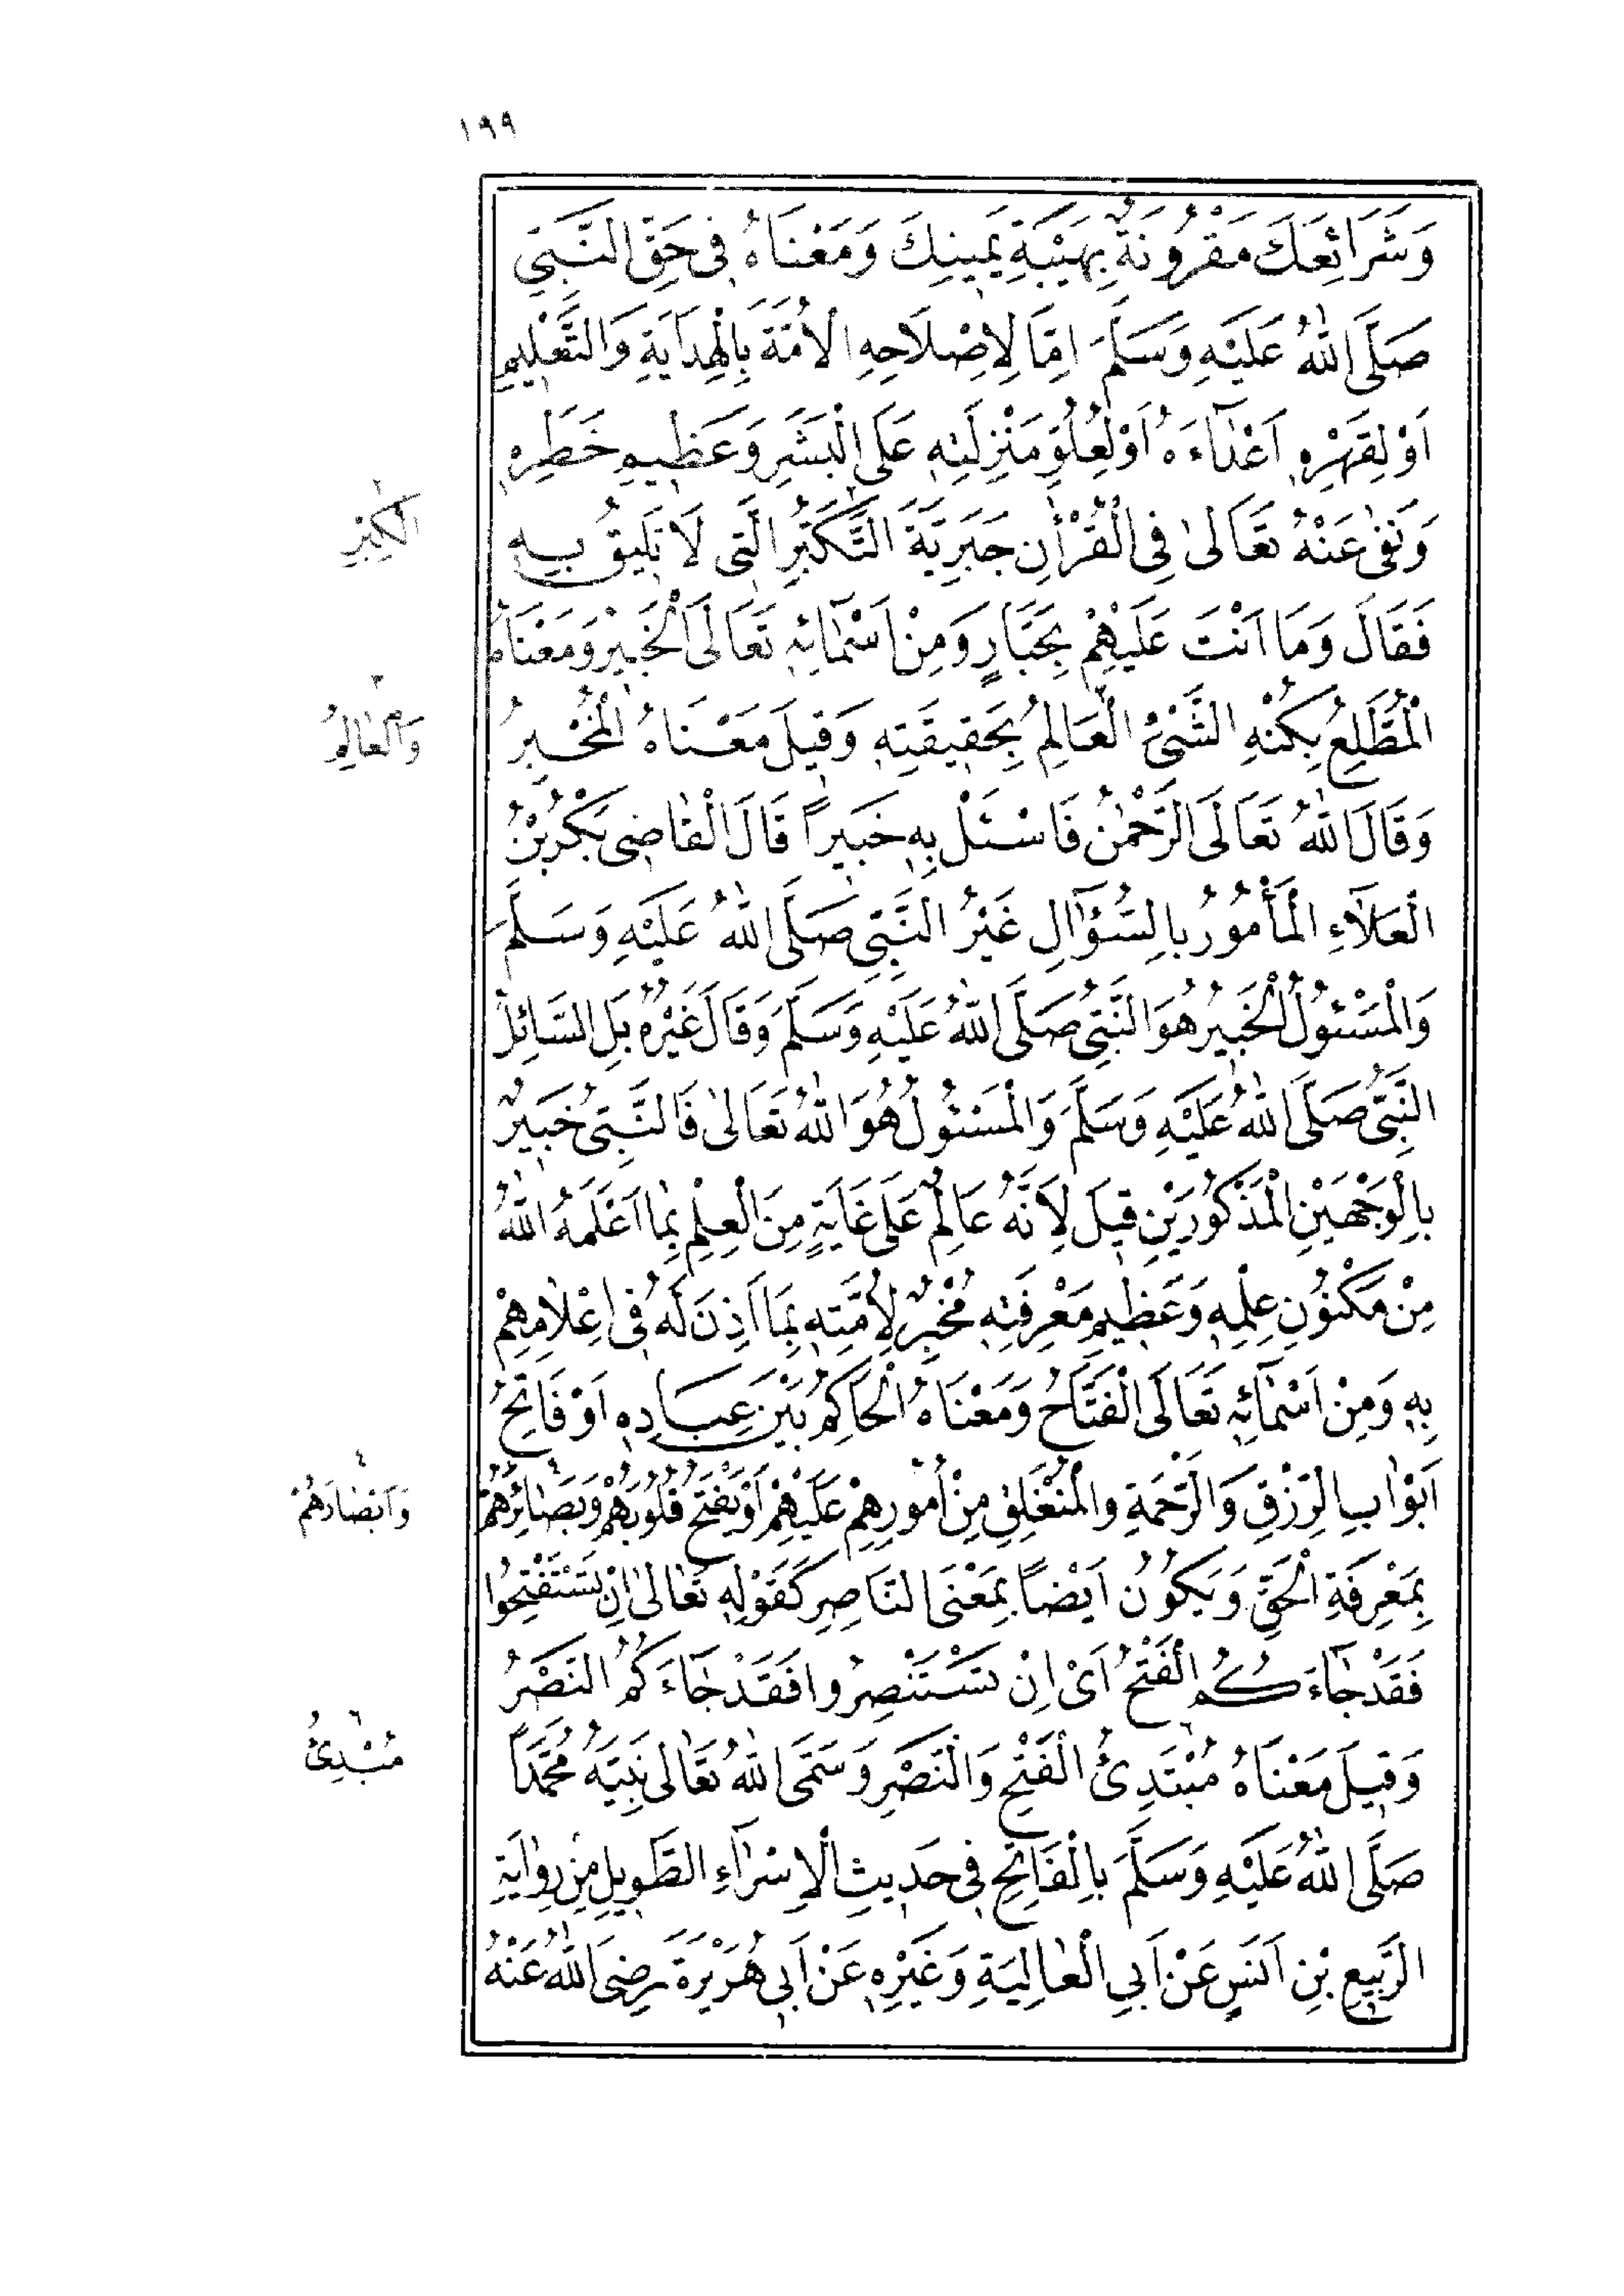 ١٩٩
وَشَرَائِعَكَ مَقْرُونَةٌ بِهَيْبَةِ يَمِينِكَ وَمَعْنَاهُ فِى حَقِّ النَّبِيِّ
صَلَّى اللّٰهُ عَلَيْهِ وَسَلَّمَ اِمَّا لِاِصْلَاحِهِ الْاُمَّةَ بِالْهِدَايَةِ وَالتَّعْلِيمِ
اَوْ لِقَهْرِهِ اَعْدَاءَهُ اَوْ لِعُلُوِّ مَنْزِلَتِهِ عَلَى الْبَشَرِ وَعَظِيمِ خَطَرِهِ
وَنَفٰى عَنْهُ تَعَالىٰ فِى الْقُرْاٰنِ جَبَرِيَّةَ التَّكَبُّرِ الَّتِى لَا تَلِيقُ بِهِ
الْكِبْرِ
فَقَالَ وَمَا اَنْتَ عَلَيْهِمْ بِجَبَّارٍ وَمِنْ اَسْمَائِهِ تَعَالَى الْخَبِيرُ وَمَعْنَاهُ
الْمُطَّلِعُ بِكُنْهِ الشَّىْءِ الْعَالِمُ بِحَقِيقَتِهِ وَقِيلَ مَعْنَاهُ الْمُخْبِرُ
٣ وَالْعَالِمُ
وَقَالَ اللّٰهُ تَعَالَى الرَّحْمٰنُ فَاسْئَلْ بِهِ خَبِيراً قَالَ الْقَاضِى بَكْرُ بْنُ
الْعَلَاءِ الْمَأْمُورُ بِالسُّؤَالِ غَيْرُ النَّبِيِّ صَلَّى اللّٰهُ عَلَيْهِ وَسَلَّمَ
وَالْمَسْئُولُ الْخَبِيرُ هُوَ النَّبِىُّ صَلَّى اللّٰهُ عَلَيْهِ وَسَلَّمَ وَقَالَ غَيْرُهُ بَلِ السَّائِلُ
النَّبِىُّ صَلَّى اللّٰهُ عَلَيْهِ وَسَلَّمَ وَالْمَسْئُولُ هُوَ اللّٰهُ تَعَالىٰ فَالنَّبِىُّ خَبِيرٌ
بِالْوَجْهَيْنِ الْمَذْكُورَيْنِ قِيلَ لِاَنَّهُ عَالِمٌ عَلَى غَايَةٍ مِنَ الْعِلْمِ بِمَا اَعْلَمَهُ اللّٰهُ
مِنْ مَكْنُونِ عِلْمِهِ وَعَظِيمِ مَعْرِفَتِهِ مُخْبِرٌ لِاُمَّتِهِ بِمَا اَذِنَ لَهُ فِى اِعْلَامِهِمْ
بِهِ وَمِنْ اَسْمَائِهِ تَعَالَى الْفَتَّاحُ وَمَعْنَاهُ الْحَاكِمُ بَيْنَ عِبَادِهِ اَوْ فَاتِحُ
اَبْوَابِ الرِّزْقِ وَالرَّحْمَةِ وَالْمُنْغَلِقِ مِنْ اُمُورِهِمْ عَلَيْهِمْ اَوْ يَفْتَحُ قُلُوبَهُمْ وَبَصَائِرَهُمْ
٤ وَاَبْصَارَهُمْ
بِمَعْرِفَةِ الْحَقِّ وَيَكُونُ اَيْضاً بِمَعْنَى النَّاصِرِ كَقَوْلِهِ تَعَالىٰ اِنْ تَسْتَفْتِحُوا
فَقَدْ جَاءَكُمُ الْفَتْحُ اَىْ اِنْ تَسْتَنْصِرُوا فَقَدْ جَاءَكُمُ النَّصْرُ
وَقِيلَ مَعْنَاهُ مُبْتَدِئُ الْفَتْحِ وَالنَّصْرِ وَسَمَّى اللّٰهُ تَعَالىٰ نَبِيَّهُ مُحَمَّداً
٦ مُبْدِئُ
صَلَّى اللّٰهُ عَلَيْهِ وَسَلَّمَ بِالْفَاتِحِ فِى حَدِيثِ الْاِسْرَاءِ الطَّوِيلِ مِنْ رِوَايَةِ
الرَّبِيعِ بْنِ اَنَسٍ عَنْ اَبِى الْعَالِيَةِ وَغَيْرِهِ عَنْ اَبِى هُرَيْرَةَ رَضِىَ اللّٰهُ عَنْهُ